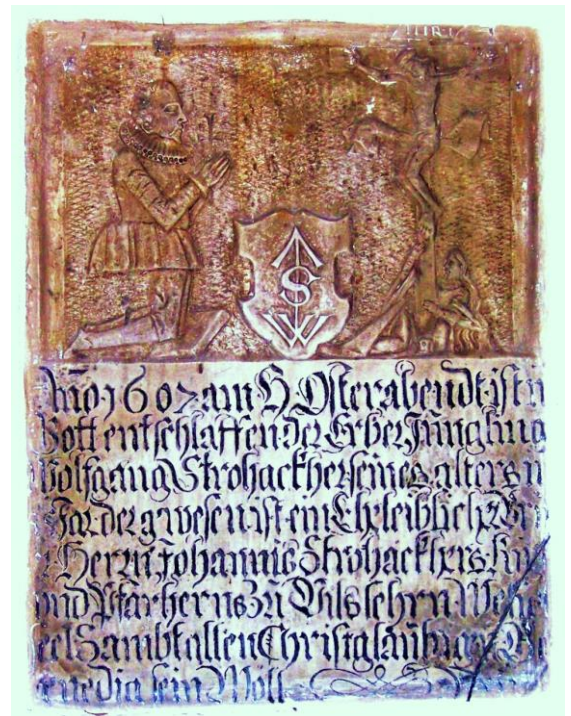 INRI
S
W
Año 1607 am H Osterabendt ist in
Gott entschlaffen der Erber Jüngling
Wolfgang Strohackher seines alters
Jar der gwesen ist ein Ehrleiblich
Herrn Johannis Strohackhers
und Pfarherns zu Vilslehrn
Sambt allen Christglaubigen
genedig sein Woll